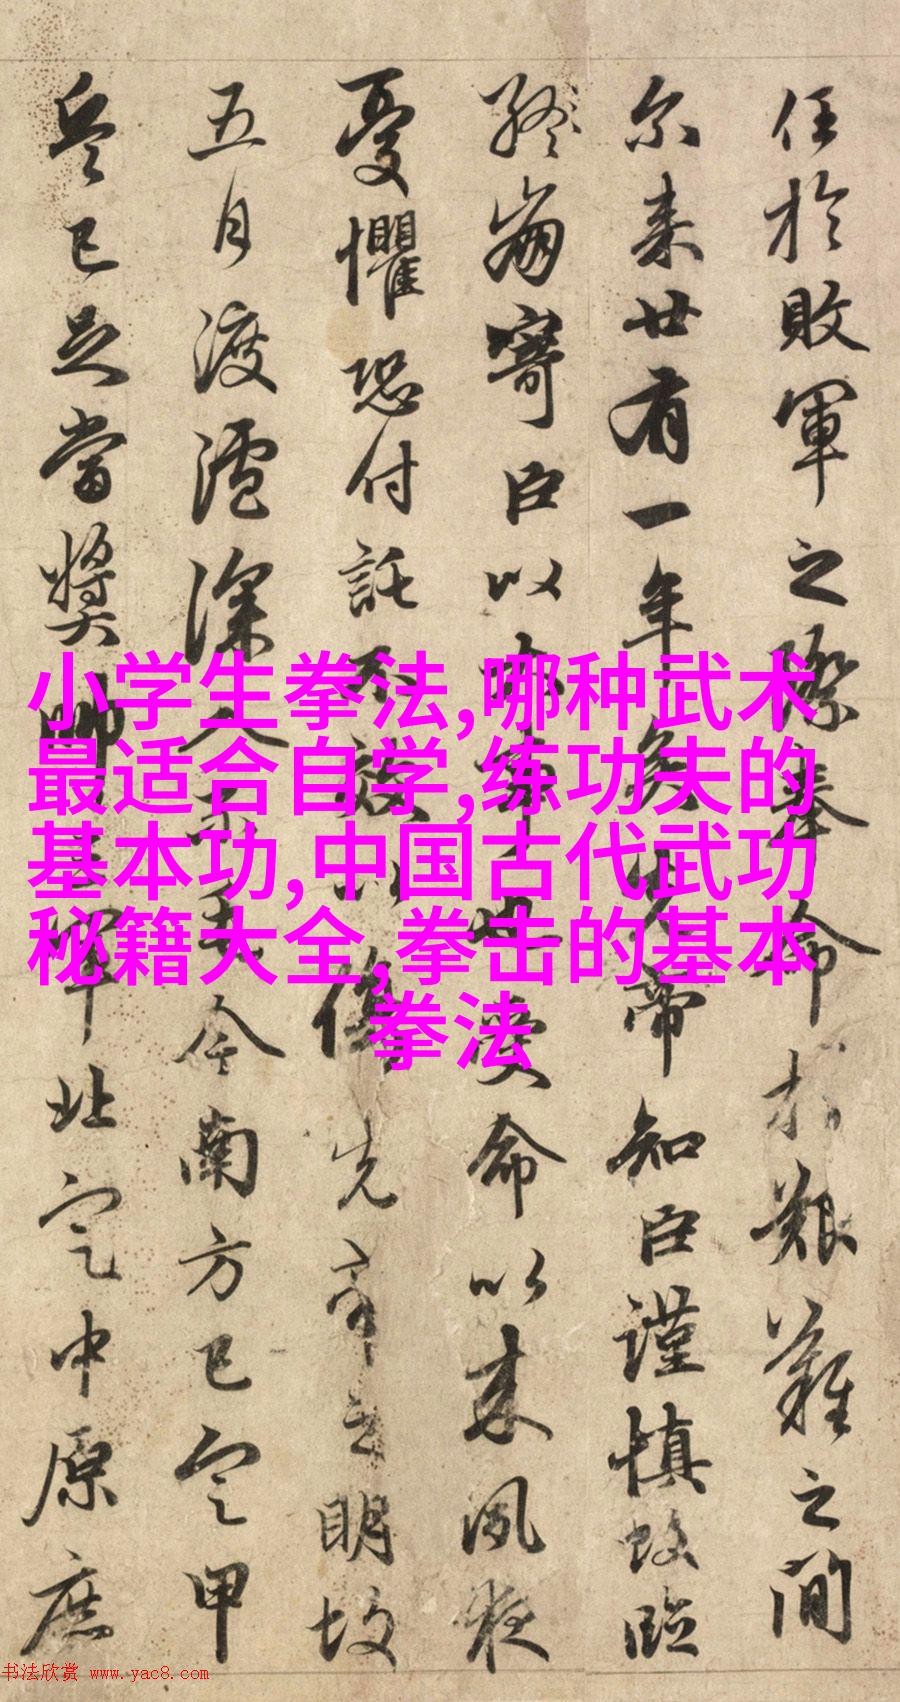 任於敗軍之際奉命於艱難之間
尔来廿有一年矣先帝知臣謹慎故臨
終崩寄臣以大事也受命以来夙夜
憂懼恐付託不效以傷先帝之明故
五月渡瀘深入不毛今南方已定甲
兵已足當獎帥三軍北定中原庶
小学生拳法,哪种武术
最适合自学,练功夫的
基本功,中国古代武功
秘籍大全,拳击的基本
拳法
书法欣赏 www.yac8.com